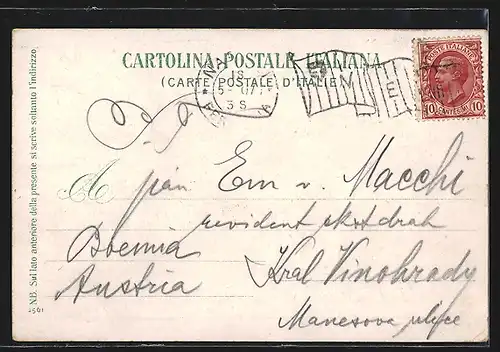 CARTOLINA POSTALE ITALIANA
(CARTE POSTALE D'ITALIE)
18
5-07
3 S
POSTE ITALIANE
10 CENTESIMI 10
A
pan Em v. Macchi
revident
Boemia
Král Vinohrady
Austria
Manesova ulice
NB. Sul lato anteriore della presente si scrive soltanto l'indirizzo.
1561